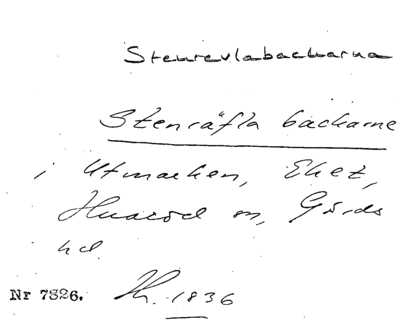 Stenrevlabackarna
Stenräfla backarne
i Utmarken, Ehet,
Huaröd sn, Gärds
hd
Nr 7326. Kh. 1836